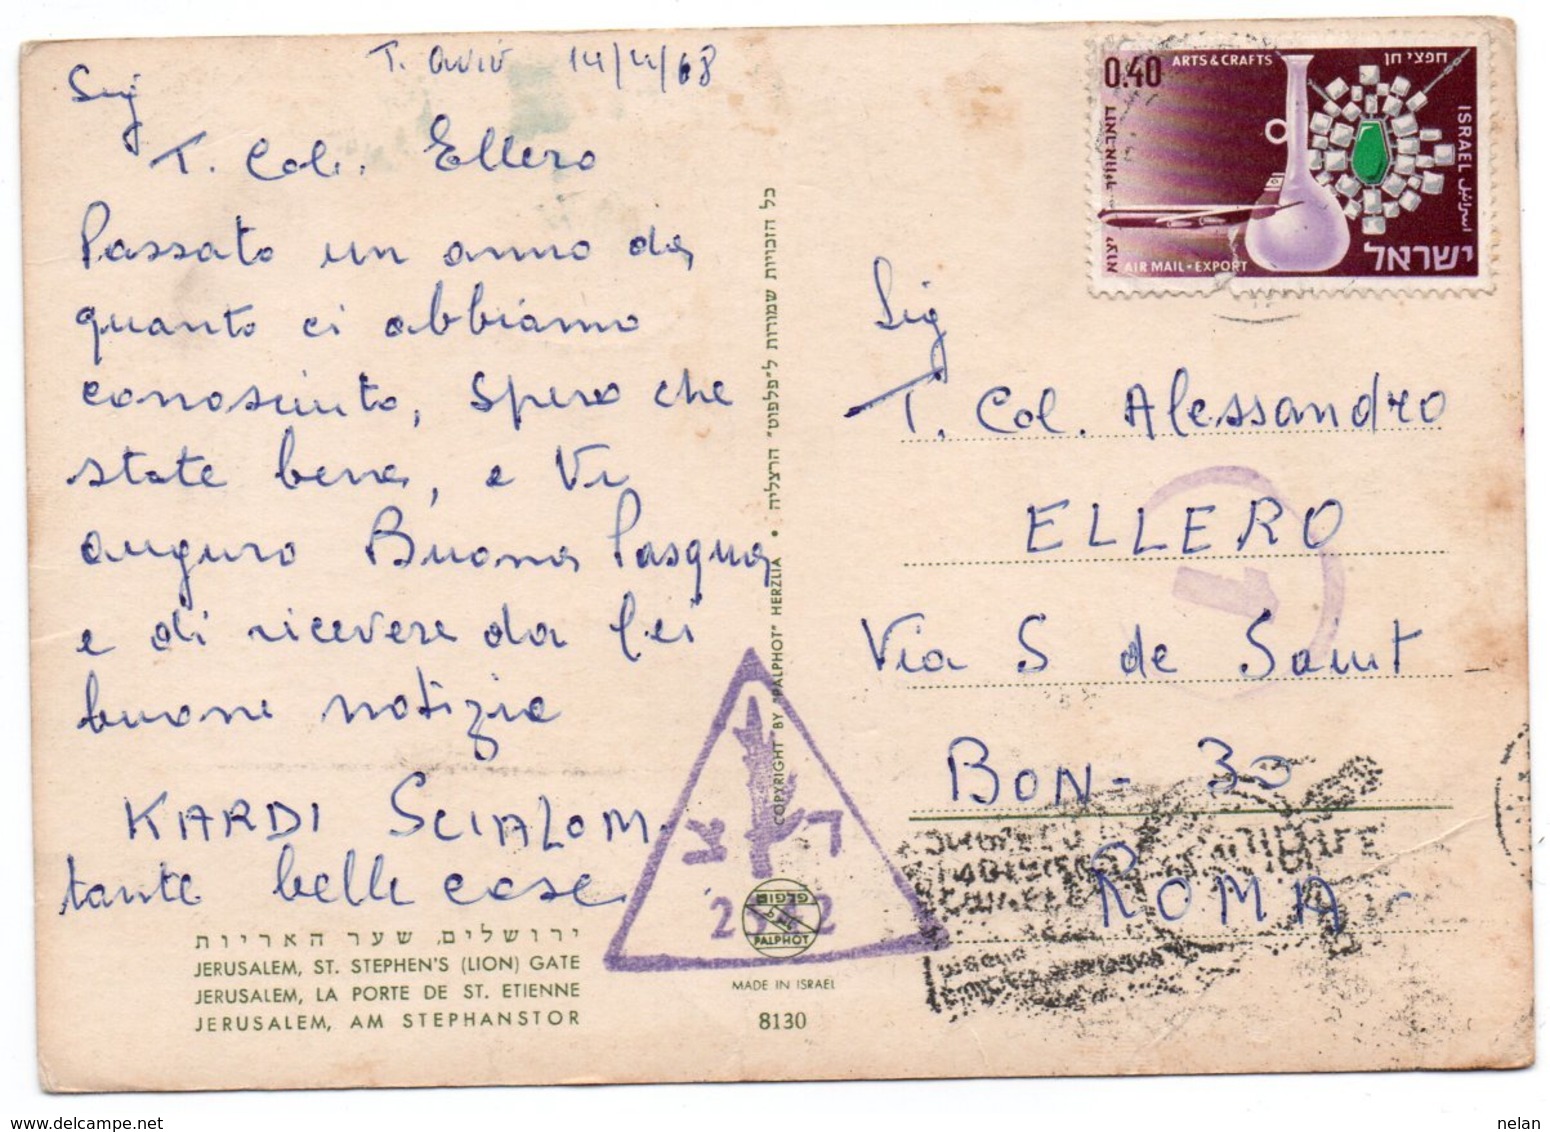 T. aviv 14/4/68
Sig
T. Col. Ellero
Passato un anno da
quanto ci abbiamo
conosciuto, spero che
state bene, e Vi
auguro Buona Pasqua
e di ricevere da lei
buone notizie
KARDI SCIALOM
tante belle cose
ירושלים, שער האריות
JERUSALEM, ST. STEPHEN'S (LION) GATE
JERUSALEM, LA PORTE DE ST. ETIENNE
JERUSALEM, AM STEPHANSTOR
כל הזכויות שמורות ל״פלפוט״ הרצליה • COPYRIGHT BY "PALPHOT" HERZLIA
צ ד
PALPHOT
MADE IN ISRAEL
8130
0.40
ARTS & CRAFTS
חפצי חן
דואר אוויר
יצוא
AIR MAIL • EXPORT
ISRAEL
اسرائيل
ישראל
Sig
T. Col. Alessandro
ELLERO
Via S de Saint
BON - 30
ROMA -
nelan
www.delcampe.net